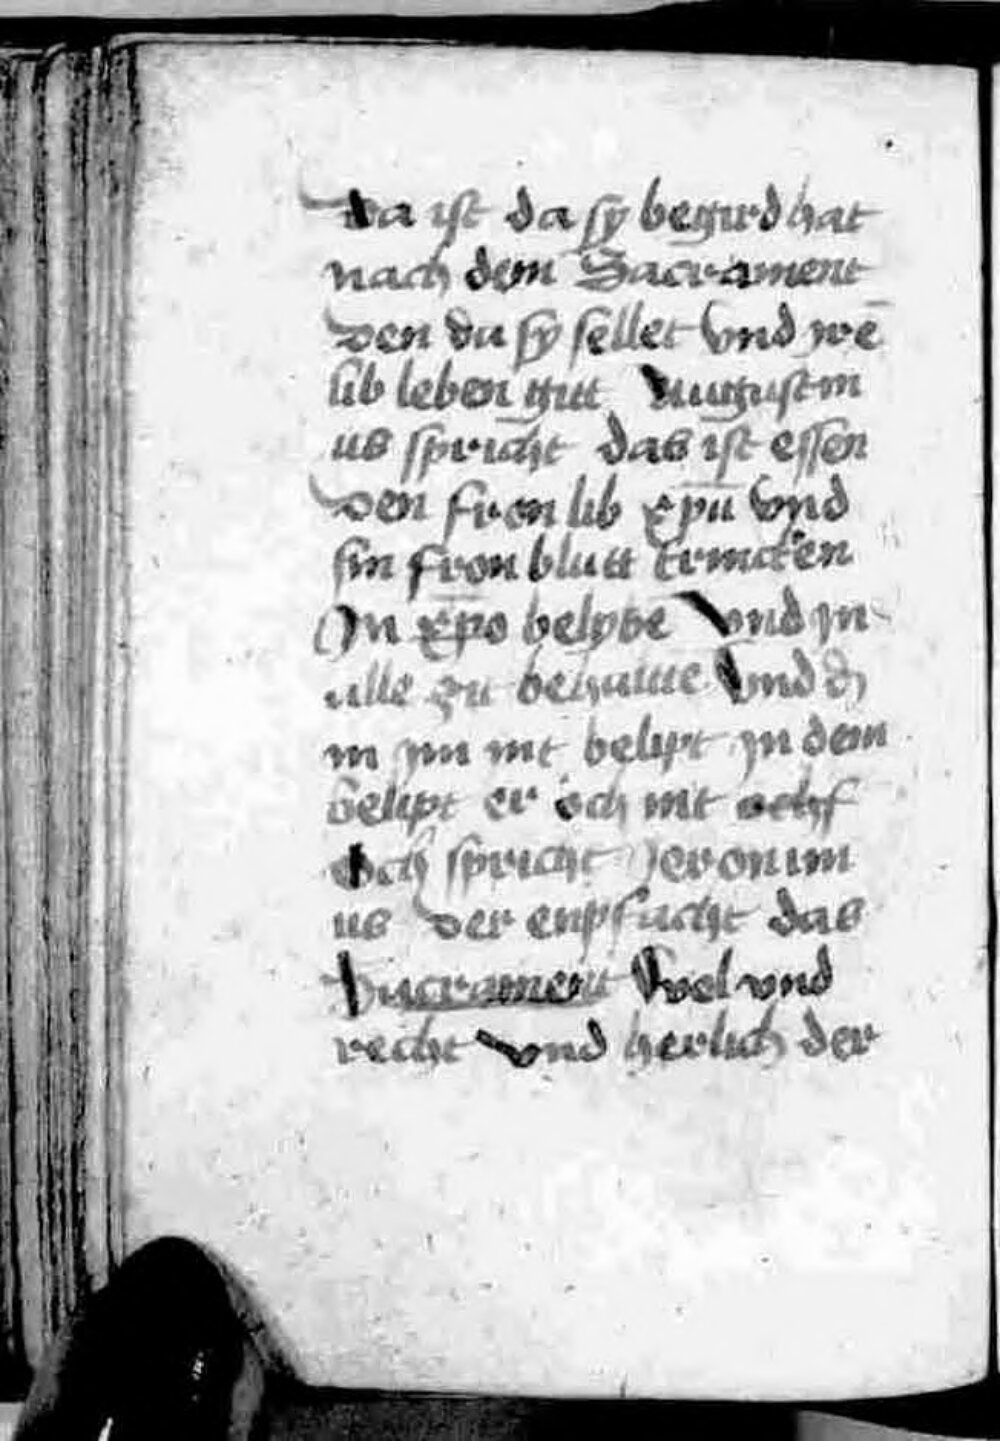 Da ist da sÿ begird hat
nach dem Sacrament
Den du sÿ sellet vnd wē
lib leben gitt Augustin
us spricht das ist essen
Den fron lib xp̄ū vnd
sin fron blutt trincken
Jn xp̄o belybe vnd jn
alle zu vnd
in im nit belipt jn dem
belipt er och nit
Och spricht Jeronim
us Der enpfacht das
Sacrament wol vnd
recht vnd herlich der